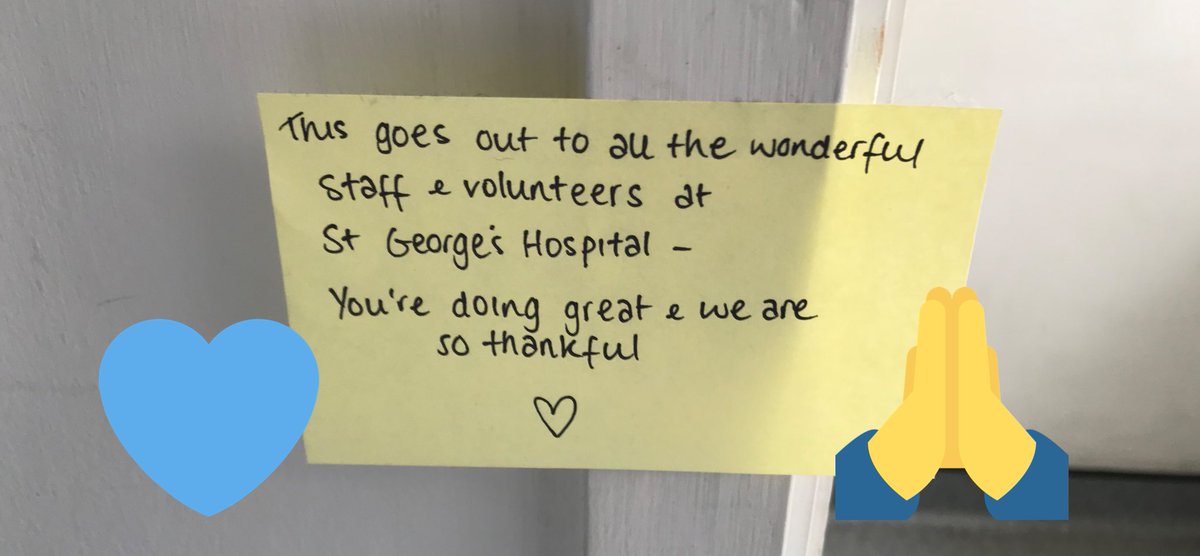 This goes out to all the wonderful
staff & volunteers at
St George's Hospital -
You're doing great & we are
so thankful